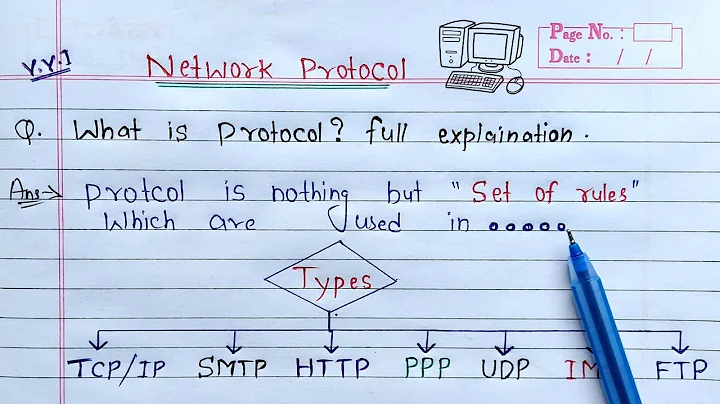 Page No. :
Date : / /
V.V.I
Network Protocol
Q. What is protocol? full explaination.
Ans → protcol is nothing but "Set of rules"
Which are used in
Types
TCP/IP SMTP HTTP PPP UDP FTP